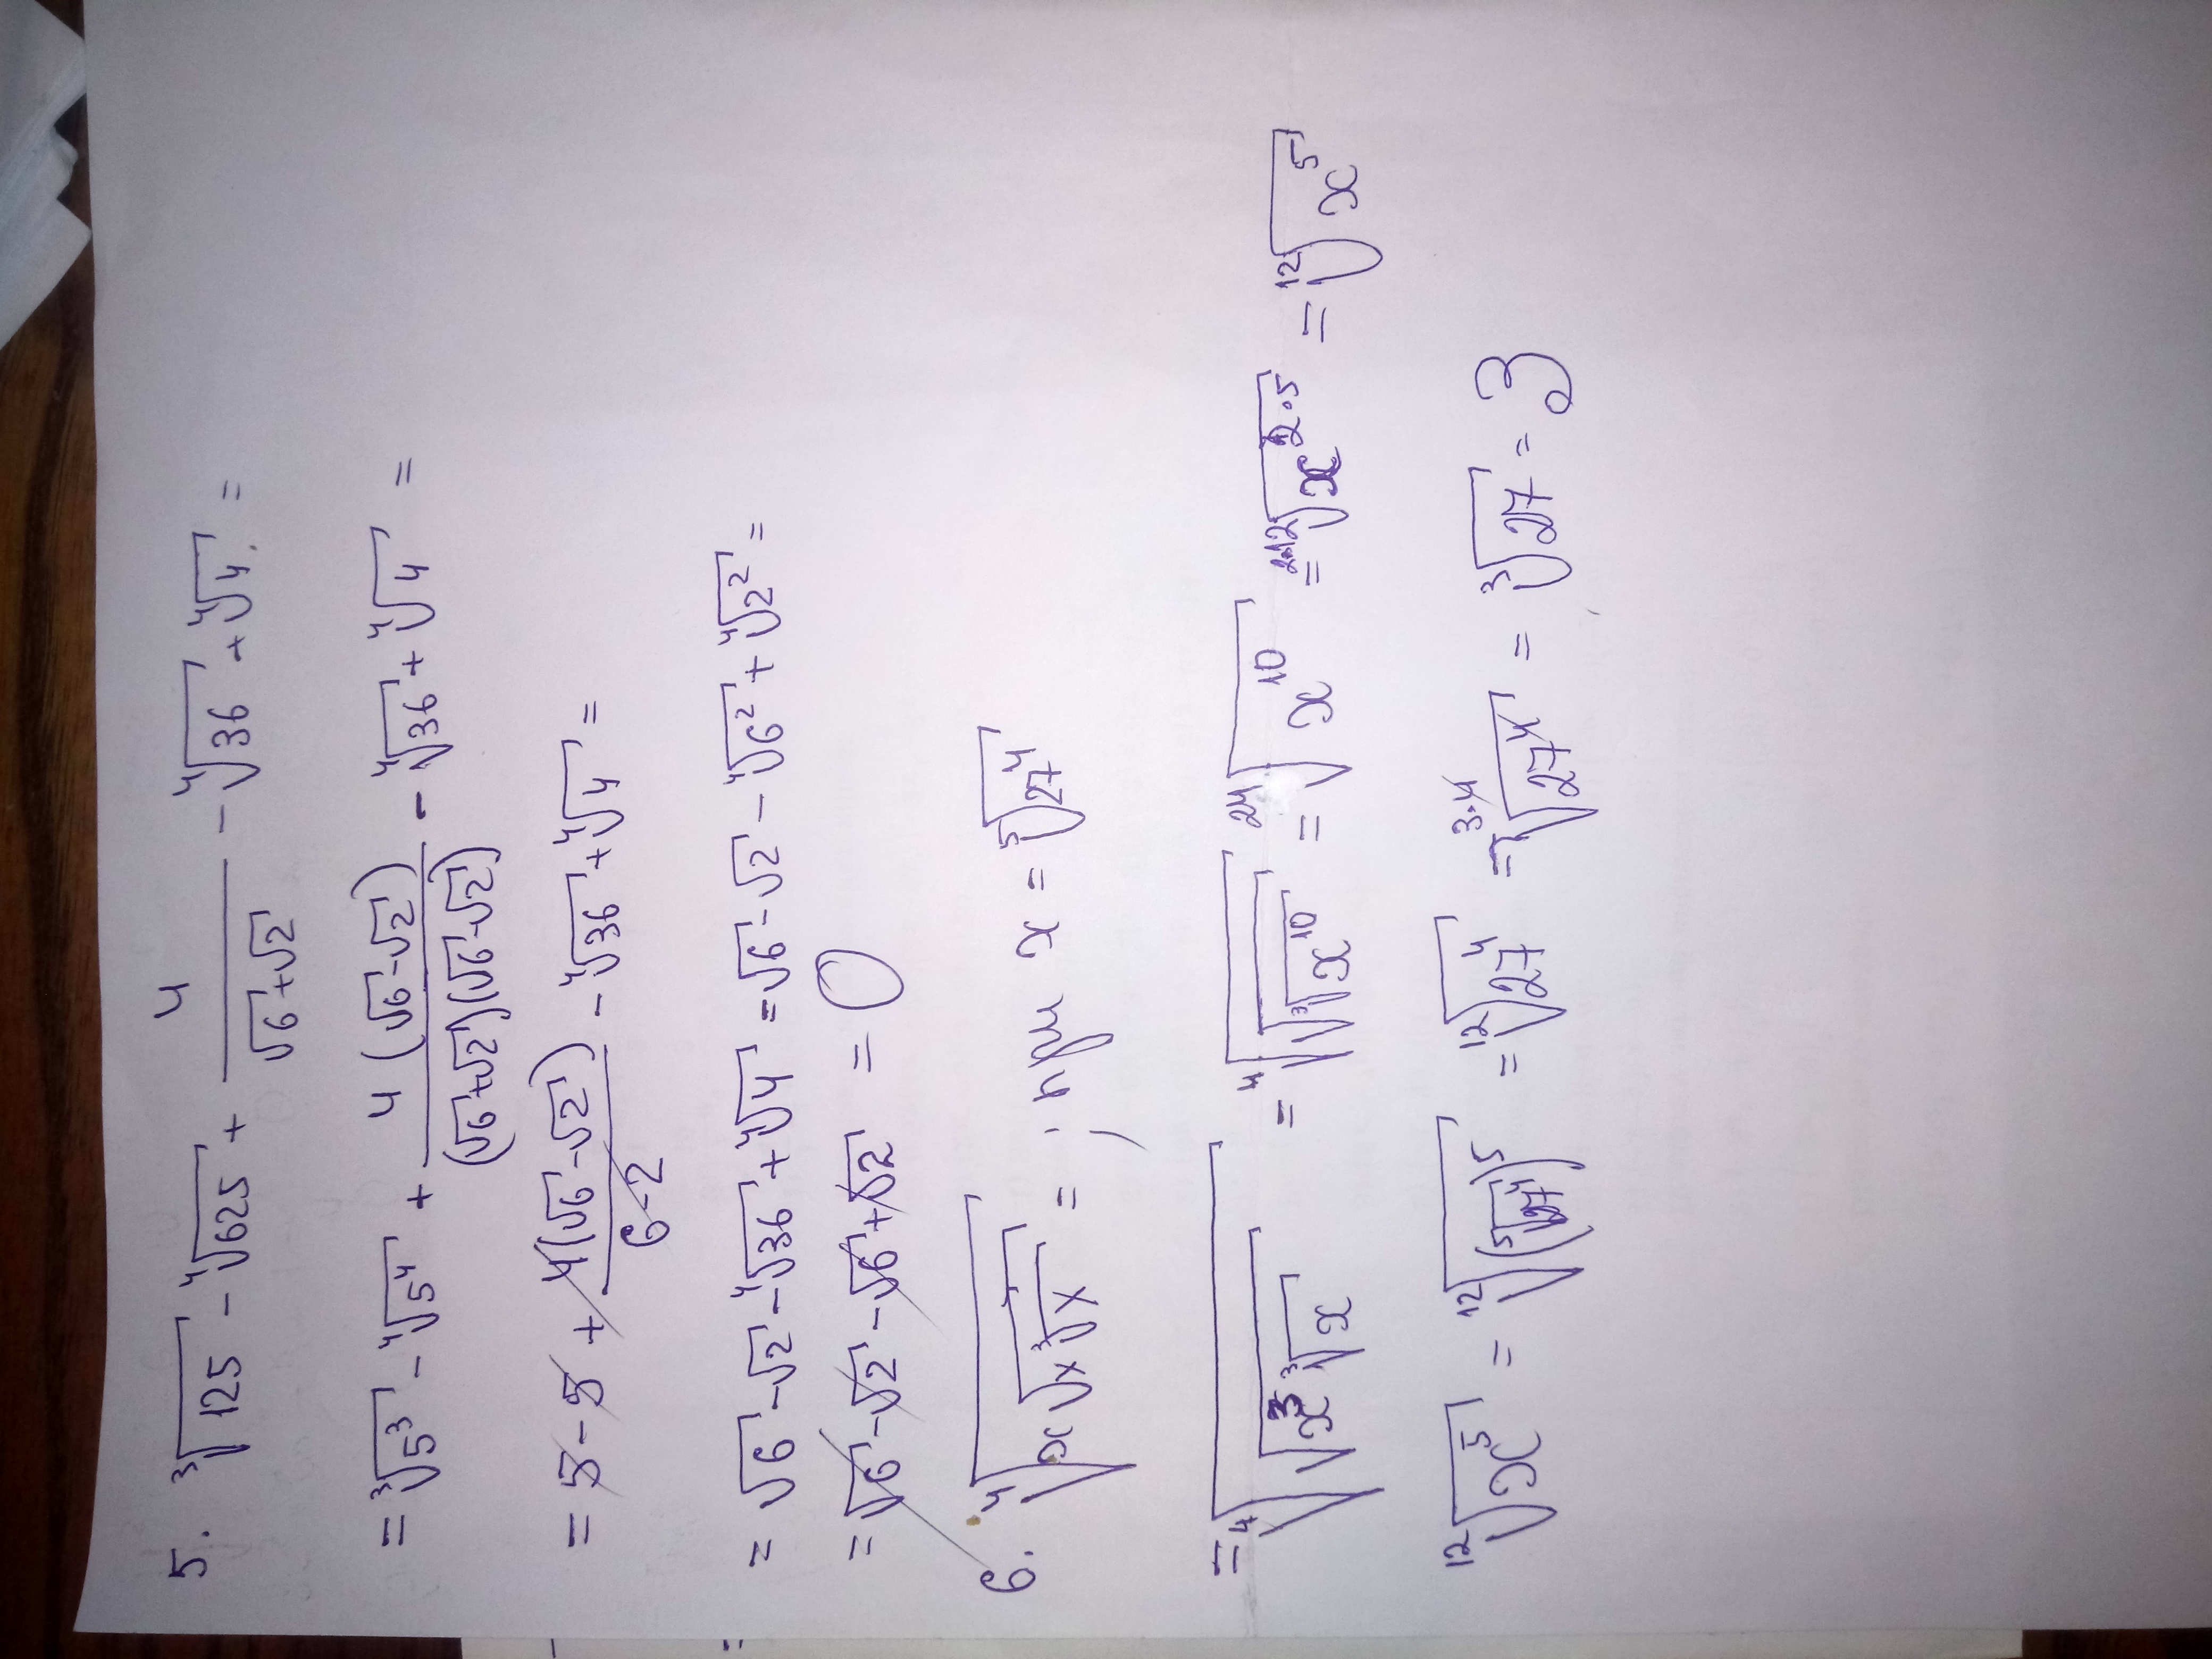 5. ∛125 - ∜625 + 4/(√6+√2) - ∜36 + ∜4 =
= ∛5³ - ∜5⁴ + 4(√6-√2)/((√6+√2)(√6-√2)) - ∜36 + ∜4 =
= 5 - 5 + 4(√6-√2)/(6-2) - ∜36 + ∜4 =
= √6 - √2 - ∜36 + ∜4 = √6 - √2 - ∜6² + ∜2² =
= √6 - √2 - √6 + √2 = 0
6. ∜(x√(x∛x)) = ; при x = ⁵√27⁴
= ∜(√(x³∛x)) = ∜(√(∛x¹⁰)) = ²⁴√x¹⁰ = ²·¹²√x²·⁵ = ¹²√x⁵
¹²√x⁵ = ¹²√((⁵√27⁴)⁵) = ¹²√27⁴ = ³·⁴√27⁴ = ∛27 = 3